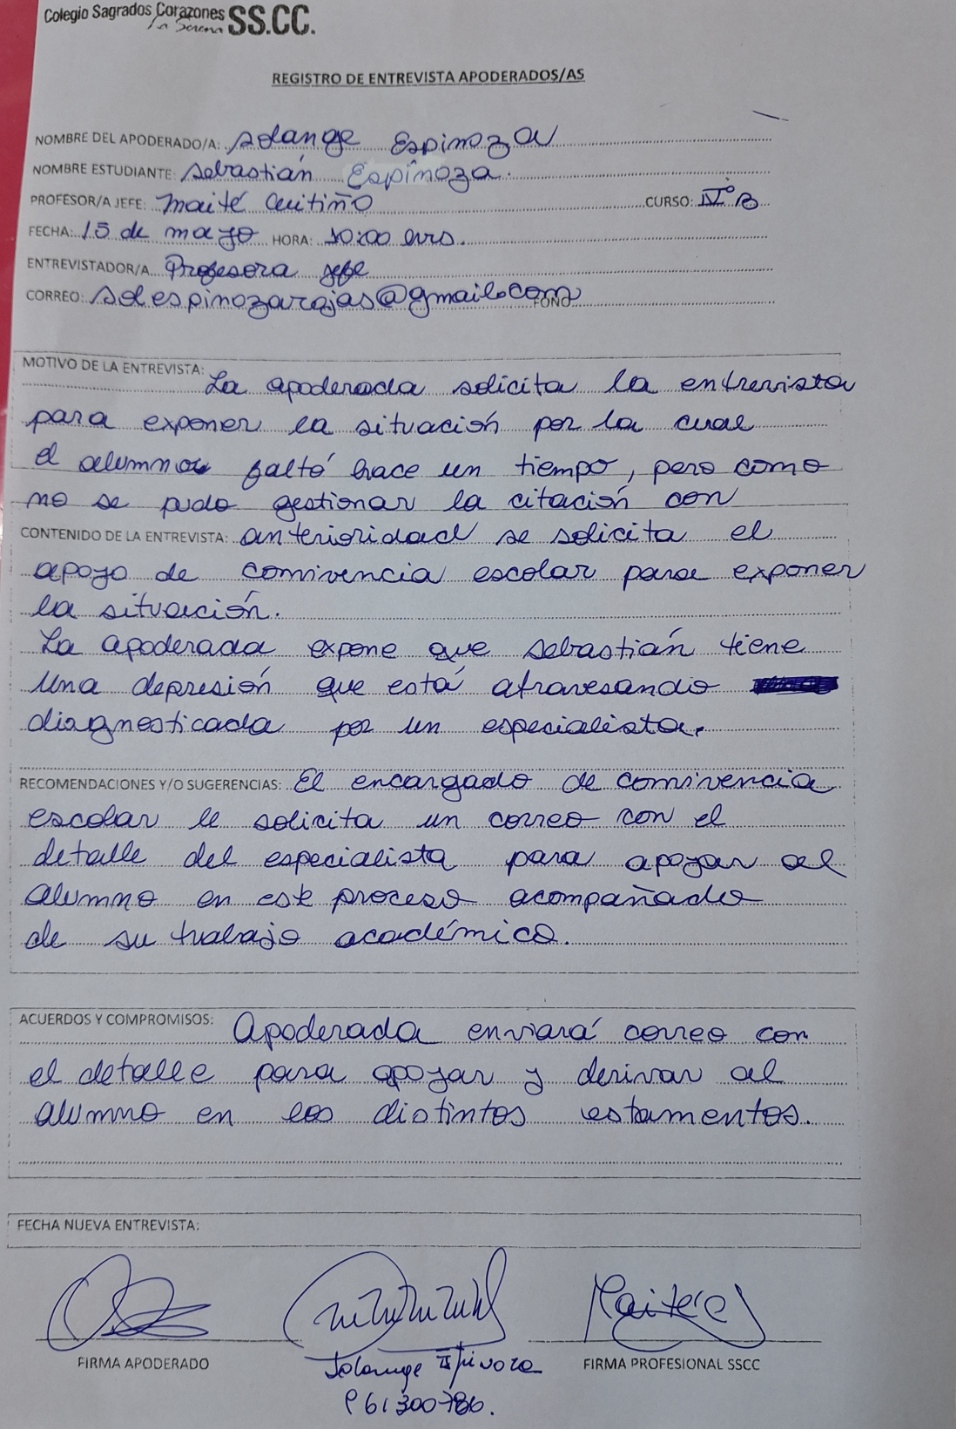 Colegio Sagrados Corazones SS.CC.
La Serena
REGISTRO DE ENTREVISTA APODERADOS/AS
NOMBRE DEL APODERADO/A: Solange Espinoza
NOMBRE ESTUDIANTE: Sebastián Espinoza.
PROFESOR/A JEFE: Maité Cuitiño CURSO: IV°B
FECHA: 15 de mayo HORA: 10:00 hrs.
ENTREVISTADOR/A: Profesora jefe
CORREO: solespinozarojas@gmail.com FONO
MOTIVO DE LA ENTREVISTA: La apoderada solicita la entrevista
para exponer la situación por la cual
el alumno faltó hace un tiempo, pero como
no se pudo gestionar la citación con
CONTENIDO DE LA ENTREVISTA: anterioridad se solicita el
apoyo de convivencia escolar para exponer
la situación.
La apoderada expone que Sebastián tiene
una depresión que está atravesando
diagnosticada por un especialista.
RECOMENDACIONES Y/O SUGERENCIAS: El encargado de convivencia
escolar le solicita un correo con el
detalle del especialista para apoyar al
alumno en este proceso acompañado
de su trabajo académico.
ACUERDOS Y COMPROMISOS: Apoderada enviará correo con
el detalle para apoyar y derivar al
alumno en los distintos estamentos.
FECHA NUEVA ENTREVISTA:
FIRMA APODERADO
Solange Espinoza
FIRMA PROFESIONAL SSCC
961300786.